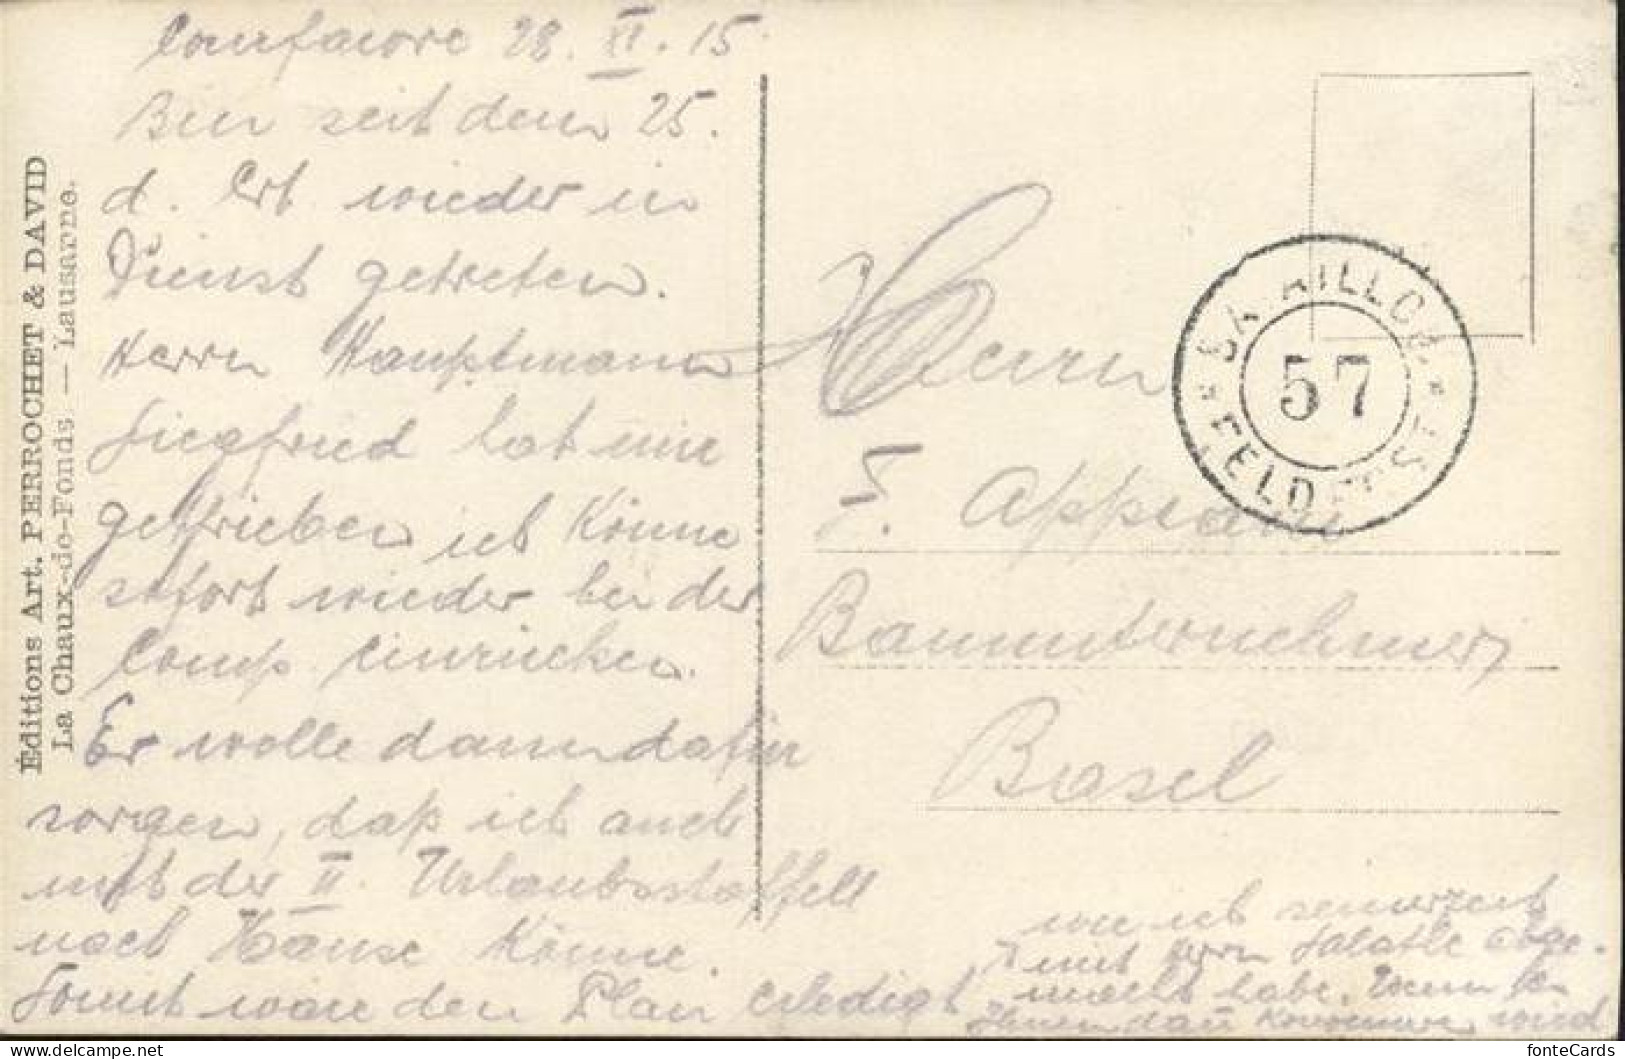 Courfaivre 28. XI. 15
Bin seit dem 25.
d. Mt wieder in
Dienst getreten.
Herrn Hauptmann
Siegfried hat mir
geschrieben ich könne
sofort wieder bei der
Comp einrücken.
Er wolle dann dafür
sorgen, daß ich auch
mit der II. Urlaubsstaffell
nach Hause könne.
Somit wäre der Plan erledigt
wie ich seinerzeit
mit Herrn abge-
macht habe. Wenn
Ihnen dann wird
Herrn
E. Appiani
Bauunternehmer
Basel
57
FELDPOST
Éditions Art. PERROCHET & DAVID
La Chaux-de-Fonds — Lausanne.
fonteCards